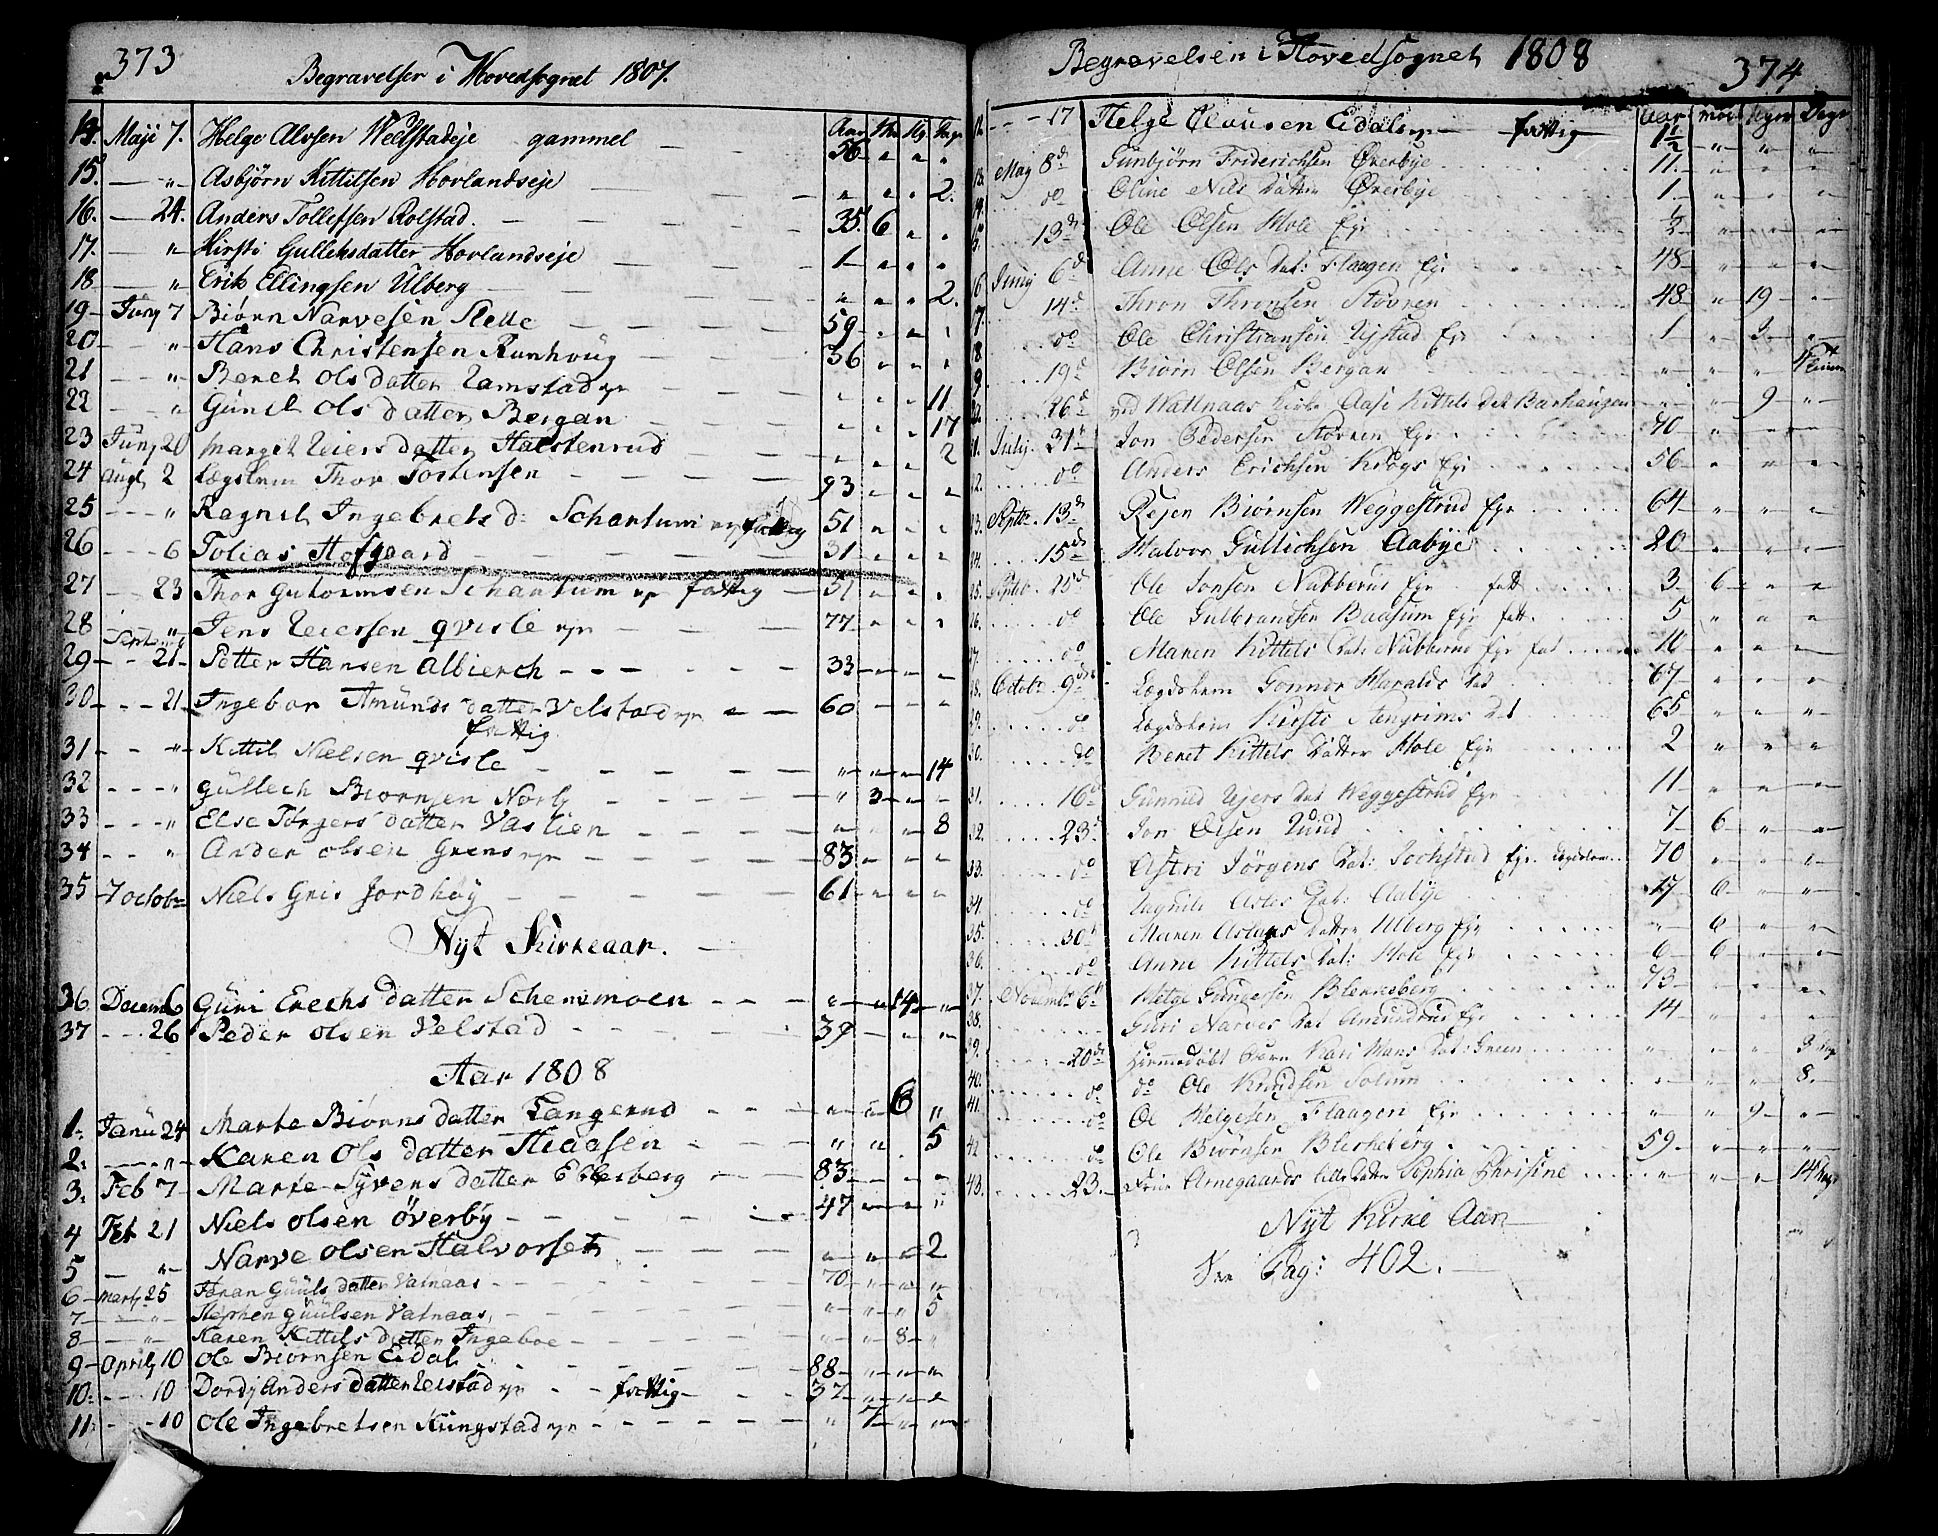 373
Begravelser i Hovedsognet 1807.
Aar
14. Maji 7. Helge Alvsen Wellstadeje gammel 56 " " "
15. — " Asbjörn Kittilsen Hovlandseje " " " 2.
16. — 24. Anders Tollefsen Rolstad 35. 6 " "
17. — " Kirsti Gulleksdatter Hovlandseje 1 " " "
18 — " Erik Ellingsen Ulberg " " " 2.
19 Junj 7 Biørn Narvesen Slette 59 " " "
20 — " Hans Christensen Runhoug 36 " " "
21 — " Beret Ols datter Ramstad " " " 11
22 — " Gunil Ols datter Bergan " " " 17
23 Junj 20 Margit datter Halstenrud " " " 2
24 Augt 2 Lægslem Thor Torstensen 93 " " "
25 — " Ragnil Ingebrets d: Schartum fattig 51 " " "
26 — 6 Tolias Hofgaard 31 " " "
27 — 23 Thor Gutormsen Schartum fattig 51 " " "
28 — " Jens qvisle 77 " " "
29 Sept 21 Petter Hansen Albierch 33 " " "
30 — 21 Ingebor Amunds datter Velstad 60 " " "
fattig
31 — " Kittil Nielsen qvisle " " " 14
32 — " Gullech Biørnsen Norby " 3 " "
33 — " Else Törgers datter Vaslien " " " 8
34 — " Ander olsen Grens 83 " " "
35 7 octobr Niels Gris Jordhøy 61 " " "
Nyt Kirkeaar.
36 Decemb 6 Guri Erechs datter " " 14 "
37 — 26 Peder olsen Velstad 39 " "
Aar 1808
1. Janu 24 Marte Biørns datter Langerud " " 6 "
2. — " Karen Ols datter Haasen " " 5
3. Feb 7 Marte Syvens datter Ellesberg 83 " " "
4 Feb 21 Niels olsen överby 47 " " "
5 — " Narve olsen Halvorset " " " 2
6 Marty 25 Jøran Guuls datter Vatnaas 70 " " "
7 — " Stephen Guulsen Vatnaas " " " 5
8 — " Karen Kittils datter Ingeboe " " 8 "
9 Aprily 10 Ole Biørnsen Eidal 88 " " "
10. — 10 Dordj Anders datter fattig 37 " " "
11 — 10 Ole Ingebretsen Kungstad " 7 " "
Begravelsen i Hovedsognet 1808
374
Aar
12. — 17 Helge Clausen Eidals fattig 1 1/2 " " "
13. May 8d Gunbjørn Friderichsen Øverbye 11. " " "
14. do Oline Nils datter Øverbye 1. " " "
15. 13d Ole Olsen Mole Eje 1/2 " " "
16 Junj 6d Anne Ols Dat: Flaagen Eje 48 " " "
17. 14d Thron Thronsen Støvren 48 " 19 "
18 do Ole Christiansen Ujstad Eje 1 " 3 "
19 19d Biørn Olsen Bergan " " "
20 26d ved Wattnaas Kirke Aase Kittels Dat Barhaugen " " 9 "
21. July 31t Jon Pedersen Støvren Eje 40 " " "
22. do Anders Erichsen Krogs Eje 56 " " "
23. Septbr. 13d Biørnsen Weggestrud Eje 64 " " "
24. 15de Halvor Gullichsen Aabye 20 " " "
25. Septbr 25d Ole Jonsen Nubberud Eje fatt 3 6 " "
26. do Ole Gulbrandsen Baasum Eje fatt. 5 " " "
27. do Maren Kittels Dat: Nubberud Eje fat 10 " " "
28. Octobr 9de Lægdslem Gonnor Haralds Dat 67 " " "
29. do Lægdslem Kirsti Stengrims Dat 65 " " "
30. do Beret Kittels Datter Mole Eje 2 " " "
31. 16d Gunnild Ujers Dat Weggestrud Eje 11 " " "
32. 23d Jon Olsen Ruud 7 6 " "
33. do Astri Jörgens Dat: Eje. 70 " " "
34. do Ragnild Dat: Aabye 17 6 " "
35. 30t Maren Datter Ulberg Eje " 6 " "
36. do Anne Kittels Dat: Mole Eje 6 6 " "
37. Novembr 6t Helge Gundersen Blekeberg 73 " " "
38. Guri Narves Dat Amundrud Eje 14 " " "
39. 20de Hiemmedøbt Barn Kari Hans Dat: Green " " " 3
40. do do Ole Knudsen Solum " " " 8.
41. do Ole Helgesen Flaagen Eje " " 9 "
42 do Ole Biørnsen Blekeberg 59 " " "
43. 23. Frue Arnegaards lille Datter Sophia Christine " " " 14
Nyt Kirke Aar
See Pag: 402.